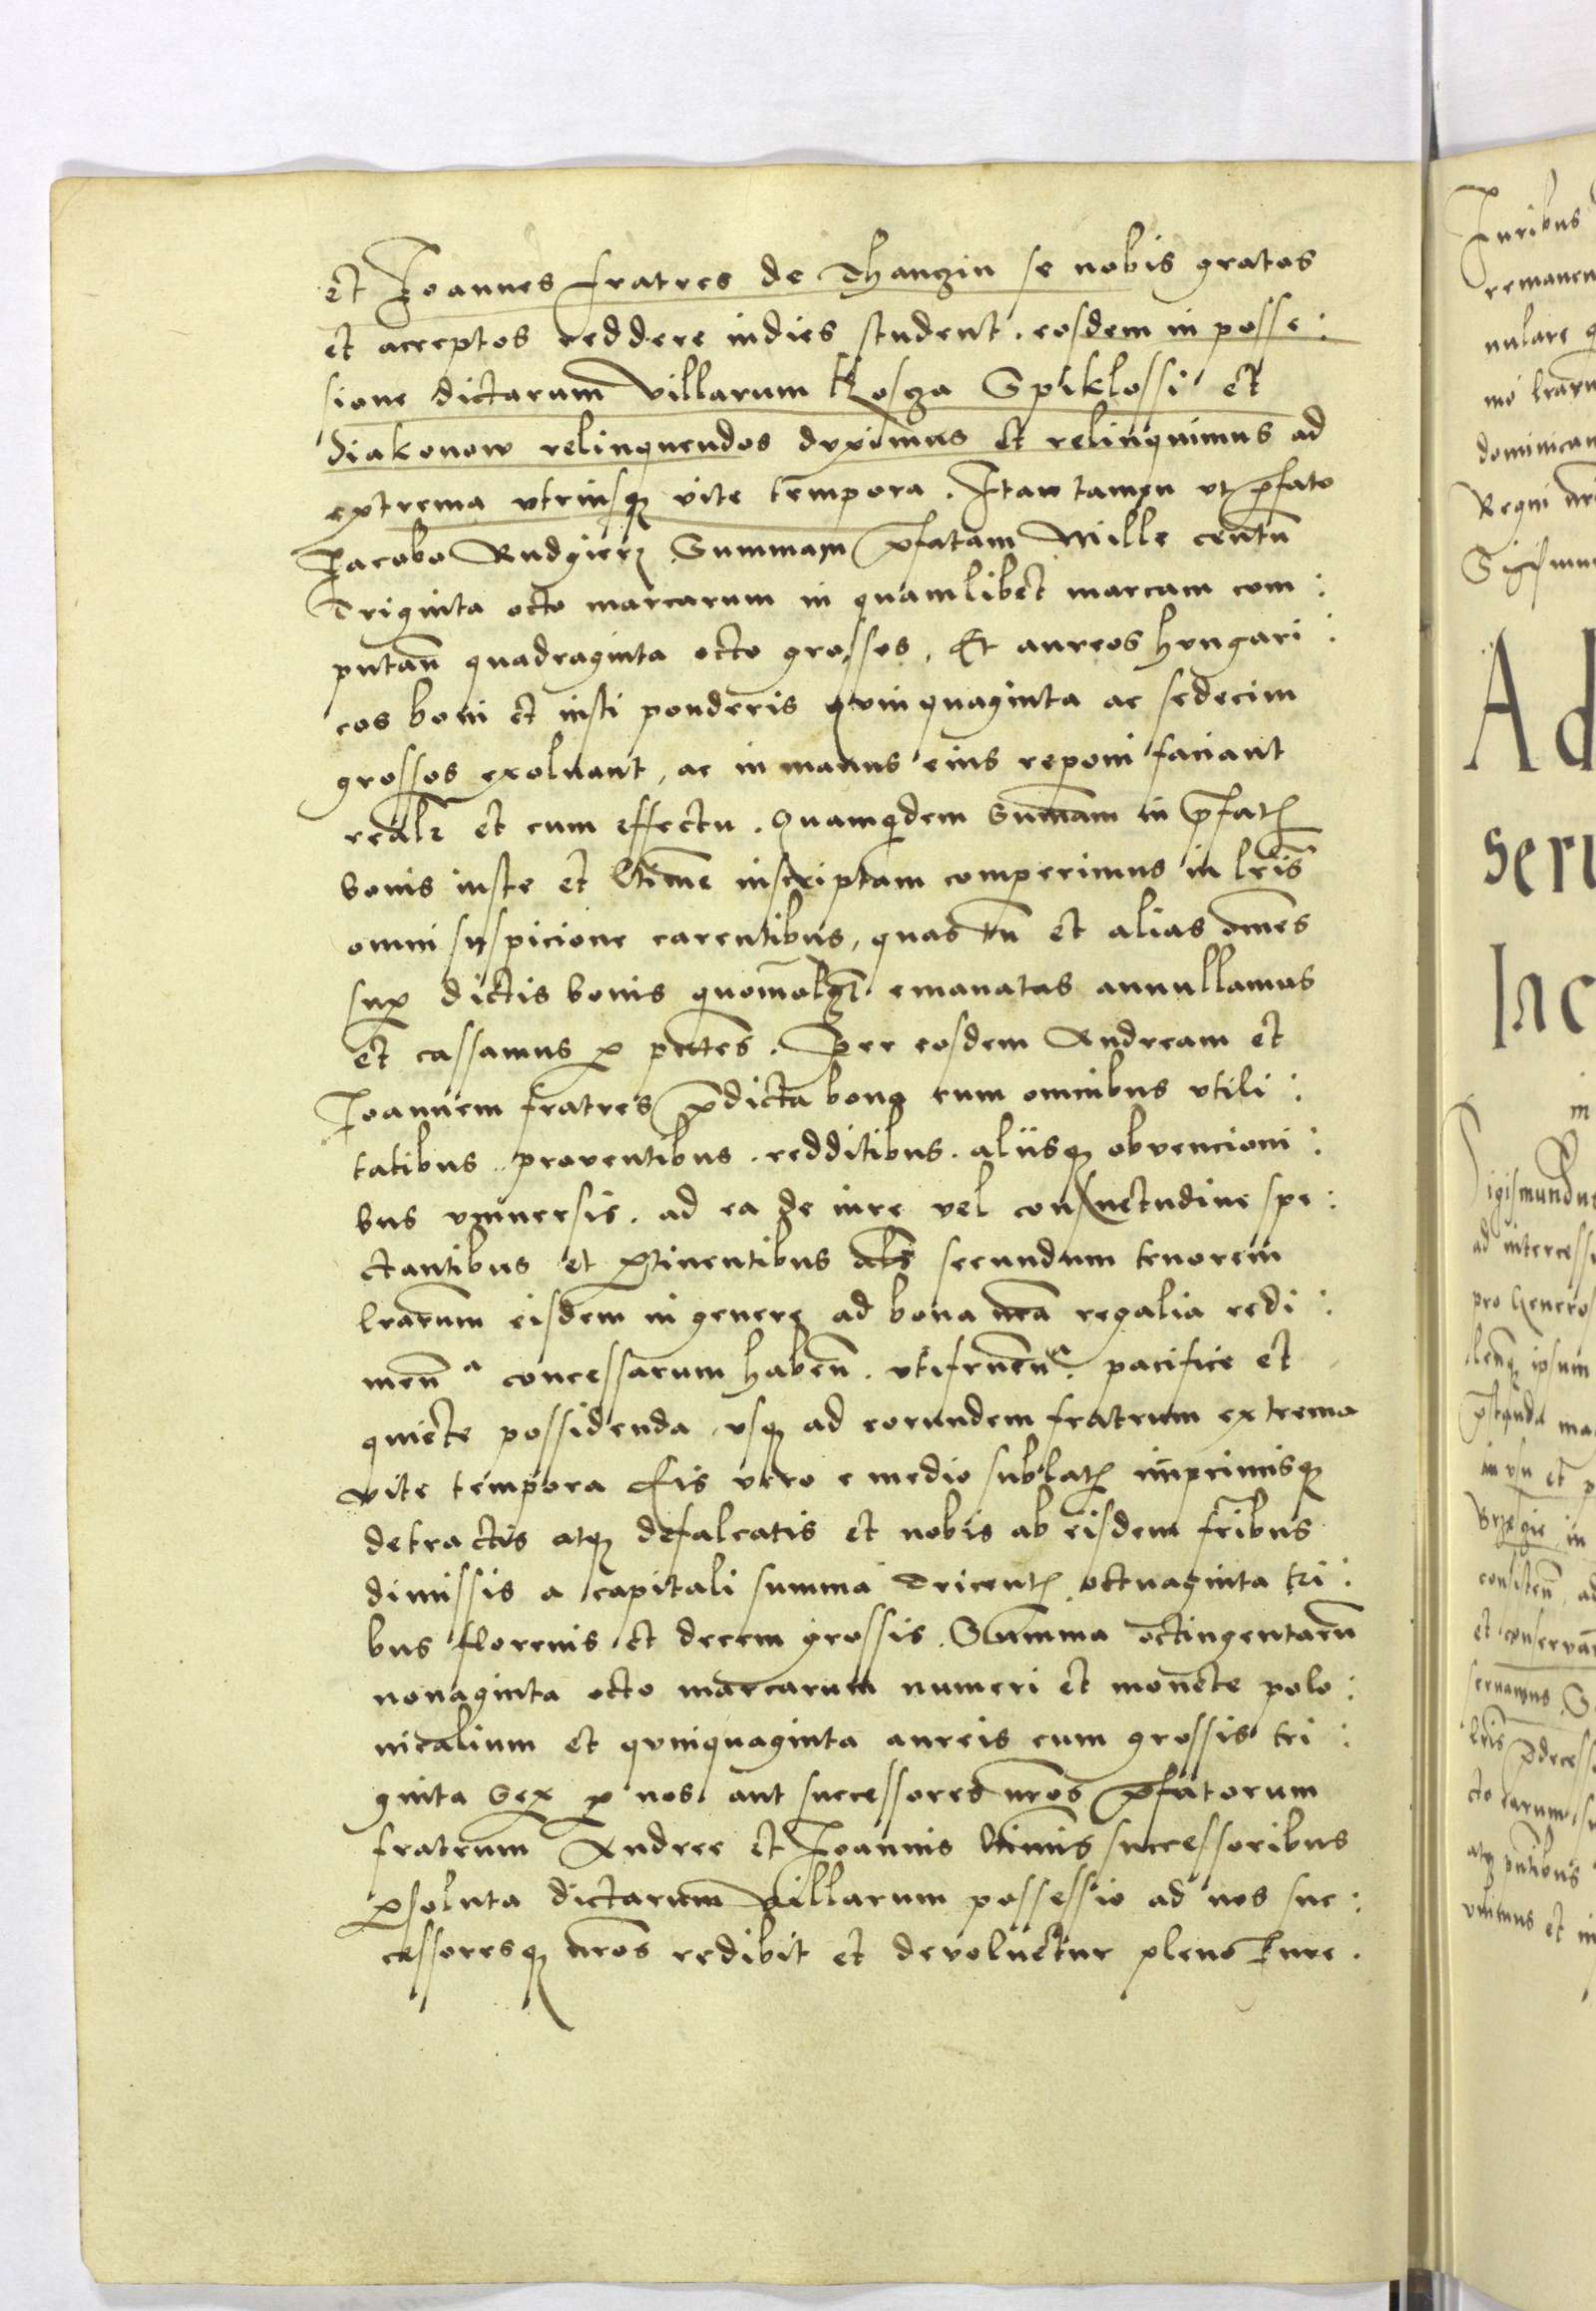 et Joannes fratres de Thanczin se nobis gratos
et acceptos reddere indies student. eosdem in posse:
sione dictarum villarum Koscza Spiklossi et
Diakonow relinquendos duximus et relinquimus ad
extrema utriusq₃ vite tempora. Itaw tamen ut p̄fato
Jacobo Rudgierz Summam p̄fatam Mille centū
Triginta octo marcarum in quamlibet marcam com:
putan̄ quadraginta octo grossos, Et aureos hungari:
cos boni et iusti ponderis quinquaginta ac sedecim
grossos exoluant, ac in manus eius reponi faciant
realr̄ et cum effectu. Quamqdem Sum̄am in p̄fatꝭ
bonis iuste et l̄time inscriptam comperimus in lr̄is
omni suspicione carentibus, quas tn̄ et alias om̄es
sup̱ dictis bonis quomōl₃t emanatas annullamus
et cassamus ꝑ pn̄tes. Per eosdem Andream et
Joannem fratres p̄dicta bona cum omnibus utili:
tatibus. proventibus. redditibus. aliisq₃ obvencioni:
bus vniuersis. ad ea de iure vel consuetudine spe:
ctantibus et ꝑtinentibus secundum tenorem
lr̄arum eisdem in genere ad bona nr̄a regalia redi:
men̄ᵃ concessarum haben̄. utifruen̄ᵃ. pacifice et
quiete possidenda, usq₃ ad eorundem fratrum extrema
vite tempora Eis vero e medio sublatꝭ imprimisq₃
detractis atq₃ defalcatis et nobis ab eisdem fr̄ibus
dimissis a capitali summa Tricentꝭ octuaginta tri:
bus florenis et decem grossis. Summa octingentarū
nonaginta octo marcarum numeri et monete polo:
nicalium et quinquaginta aureis cum grossis tri:
ginta Sex ꝑ nos aut successores nr̄os p̄fatorum
fratrum Andree et Joannis l̄timis successoribus
ꝑsoluta dictarum villarum possessio ad nos suc:
cessoresq₃ nr̄os redibit et devoluetur pleno Jure.
Juribus
remanen
nulare
mo lr̄aru
dominicam
Regni nr̄i
Sigismu
Ad
seru
Inc
in
Sigismundus
ad intercessi
pro Generos
ipsum
ma
in usu et p
in
consisten̄, ad
et conservan
seruamus. S
lr̄is p̄decess
atq₃ pn̄tibus
et in